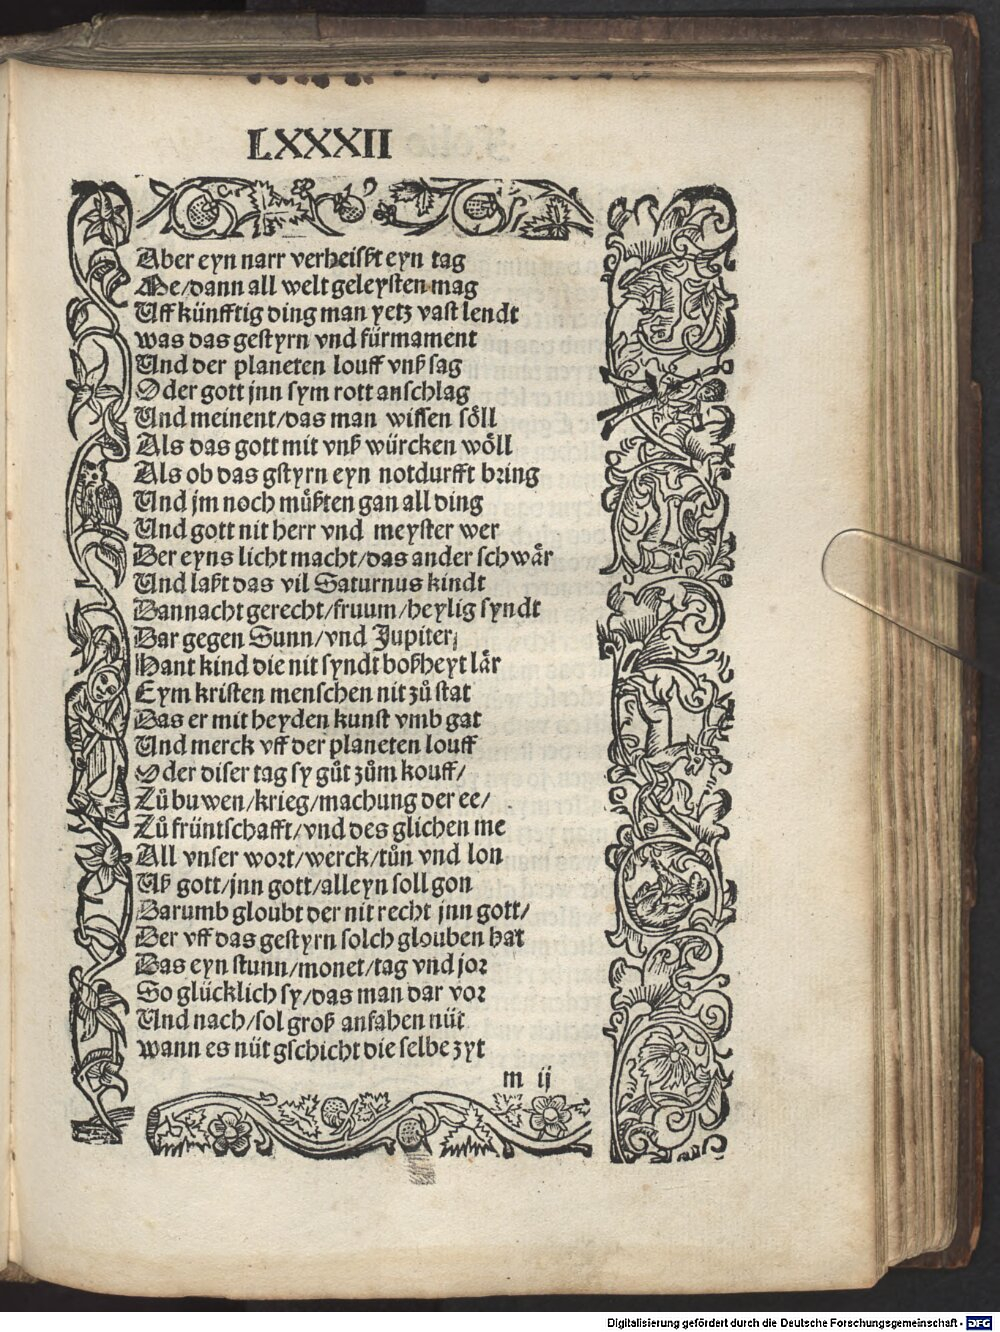 LXXXII
Aber eyn narr verheißt eyn tag
Me/dann all welt geleysten mag
Uff künfftig ding man yetz vast lendt
was das gestyrn vnd fürmament
Und der planeten louff vnß sag
Oder gott jnn sym rott anschlag
Und meinent/das man wissen söll
Als das gott mit vnß würcken wöll
Als ob das gstyrn eyn notdurfft bring
Und jm noch müßten gan all ding
Und gott nit herr vnd meyster wer
Der eyns licht macht/das ander schwär
Und laßt das vil Saturnus kindt
Dannacht gerecht/fruum/heylig syndt
Dar gegen Sunn/vnd Jupiter
Hant kind die nit syndt boßheyt lär
Eym kristen menschen nit zů stat
Das er mit heyden kunst vmb gat
Und merck vff der planeten louff
Oder diser tag sy gůt zům kouff/
Zů buwen/krieg/machung der ee/
Zů früntschafft/vnd des glichen me
All vnser wort/werck/tůn vnd lon
Uß gott/jnn gott/alleyn soll gon
Darumb gloubt der nit recht jnn gott/
Der vff das gestyrn solch glouben hat
Das eyn stunn/monet/tag vnd jor
So glücklich sy/das man dar vor
Und nach/sol groß anfahen nüt
wann es nüt gschicht die selbe zyt
m ij
Digitalisierung gefördert durch die Deutsche Forschungsgemeinschaft - DFG